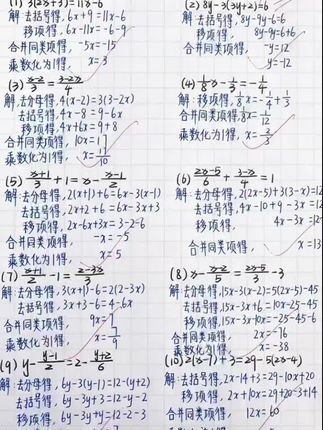 (1) 3(2x+3)=11x-6
解:去括号得, 6x+9=11x-6
移项得, 6x-11x=-6-9
合并同类项得, -5x=-15
乘数化为1得, x=3
(2) 8y-3(3y+2)=6
解:去括号得, 8y-9y-6=6
移项得, 8y-9y=6+6
合并同类项得, -y=12
y=-12
(3) (x-2)/3=(3-2x)/4
解:去分母得, 4(x-2)=3(3-2x)
去括号得, 4x-8=9-6x
移项得, 4x+6x=9+8
合并同类项得, 10x=17
乘数化为1得, x=17/10
(4) 1/8x-1/3=-1/4
解:移项得, 1/8x=-1/4+1/3
合并同类项得, 1/8x=1/12
乘数化为1得, x=2/3
(5) (x+1)/3+1=x-(x-1)/2
解:去分母得, 2(x+1)+6=6x-3(x-1)
去括号得, 2x+2+6=6x-3x+3
移项得, 2x-6x+3x=3-2-6
合并同类项得, -x=-5
乘数化为1得, x=5
(6) (2x-5)/6+(3-x)/4=1
解:去分母得, 2(2x-5)+3(3-x)=12
去括号得, 4x-10+9-3x=12
移项得, 4x-3x=12
合并同类项得, x=13
(7) (x+1)/2-1=(2-3x)/3
解:去分母得, 3(x+1)-6=2(2-3x)
去括号得, 3x+3-6=4-6x
合并同类项得, 9x=7
乘数化为1得, x=7/9
(8) x-(x-2)/5=(2x-5)/3-3
解:去分母得, 15x-3(x-2)=5(2x-5)-45
去括号得, 15x-3x+6=10x-25-45
移项得, 15x-3x-10x=-25-45-6
合并同类项得, 2x=-76
乘数化为1得, x=-38
(9) y-(y-1)/2=2-(y+2)/6
解:去分母得, 6y-3(y-1)=12-(y+2)
去括号得, 6y-3y+3=12-y-2
移项得, 6y-3y+y=12-2-3
(10) 2(x-7)+3=29-5(2x-4)
解:去括号得, 2x-14+3=29-10x+20
移项得, 2x+10x=29+20-3+14
合并同类项得, 12x=60